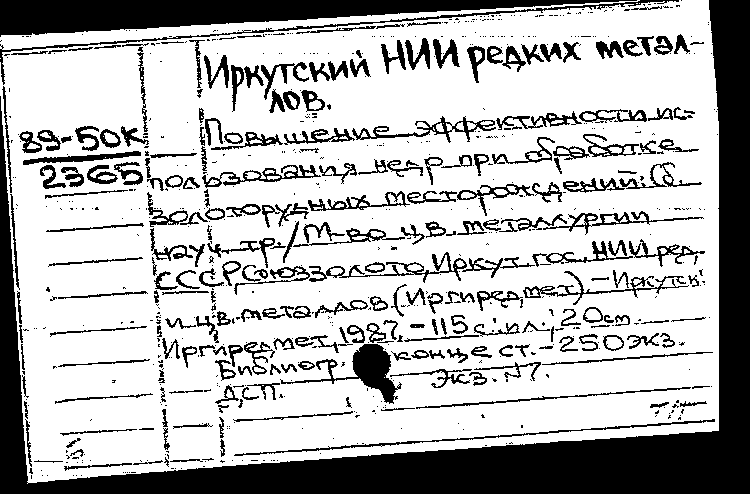 Иркутский НИИ редких метал-
лов.
89-50К
2365
Повышение эффективности ис-
пользования недр при обработке
золоторудных месторождений: Сб.
науч. тр./М-во цв. металлургии
СССР, Союззолото, Иркут. гос. НИИ ред.
и цв. металлов (Иргиредмет). - Иркутск:
Иргиредмет, 1987. - 115 с.: ил.; 20 см.
Библиогр. конце ст. - 250 экз.
ДСП. Экз. №7.
Б